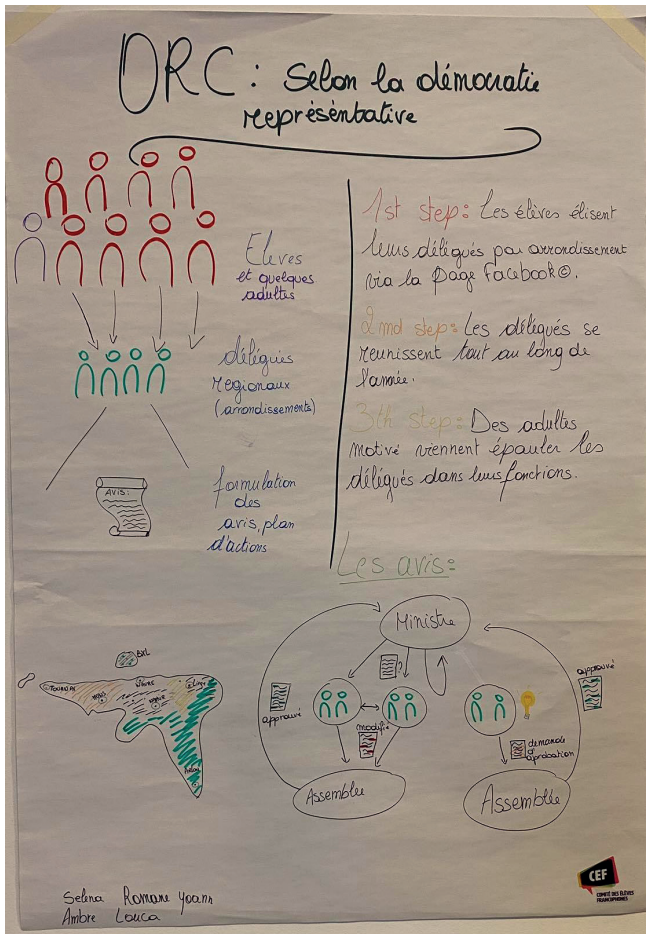 ORC : Selon la démocratie
représéntative
Eleves
et quelques
adultes
délégués
regionaux
(arrondissements)
AVIS:
formulation
des
avis, plan
d'actions
1st step: Les élèves élisent
leurs délégués par arrondissement
via la page Facebook©.
2nd step: Les délégués se
reunissent tout au long de
l'année.
3th step: Des adultes
motivé viennent épauler les
délégués dans leurs fonctions.
Les avis:
BXL
TOURNAI
Mons
Namur
Liège
Arlon
Ministre
?
approuvé
modifié
Assemblée
approuvé
demande
d'approbation
Assemblée
Selena Romane Yoann
Ambre Louca
CEF
COMITÉ DES ÉLÈVES
FRANCOPHONES